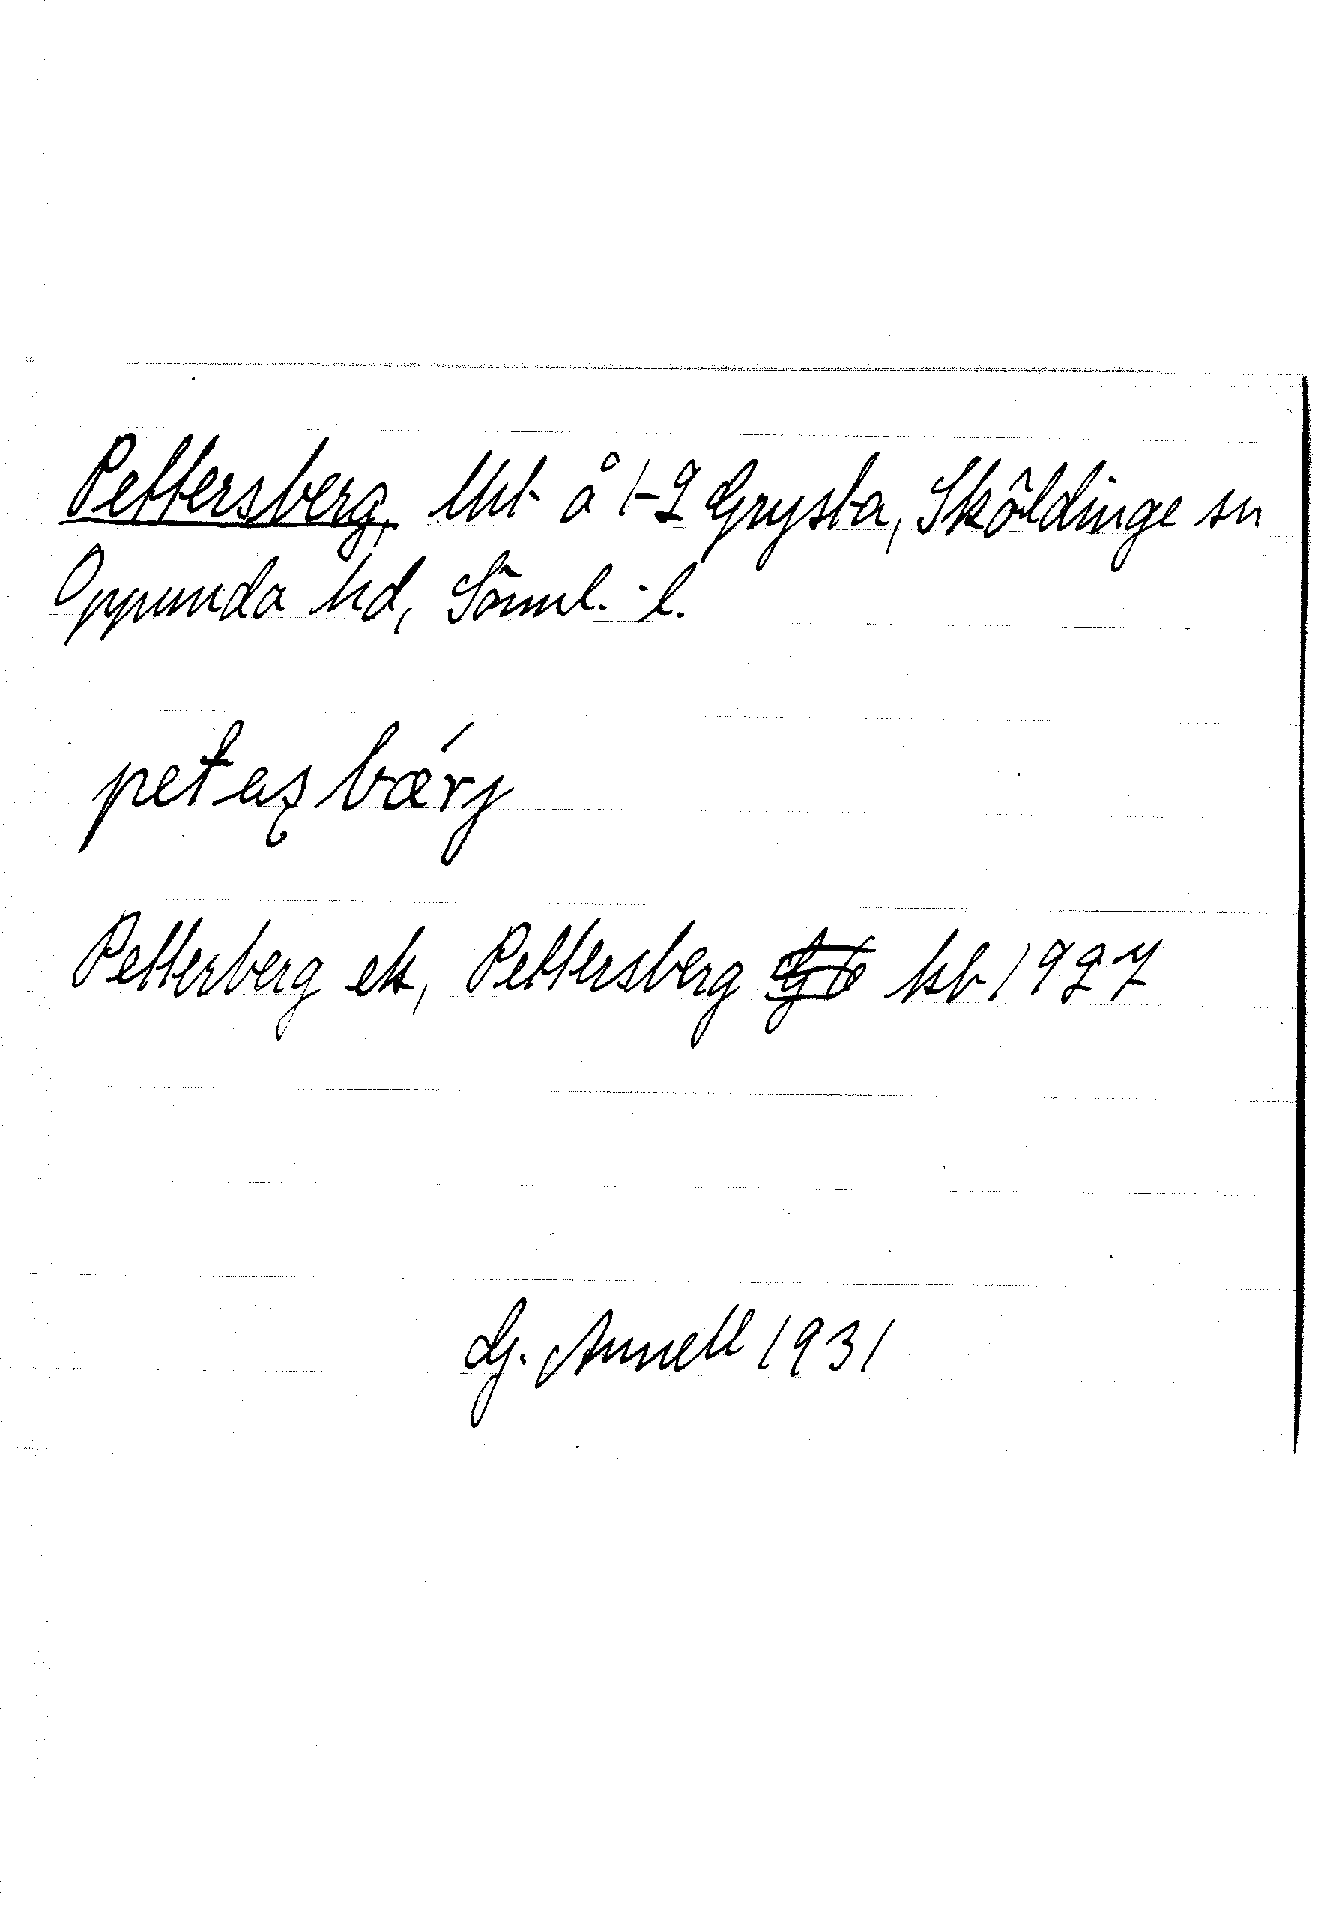 Pettersberg, lht å 1-2 Grysta, Sköldinge sn
Oppunda hd, Sörml. l.
petaʂbǽrj
Petterberg ek, Pettersberg kb 1927
G. Annell 1931